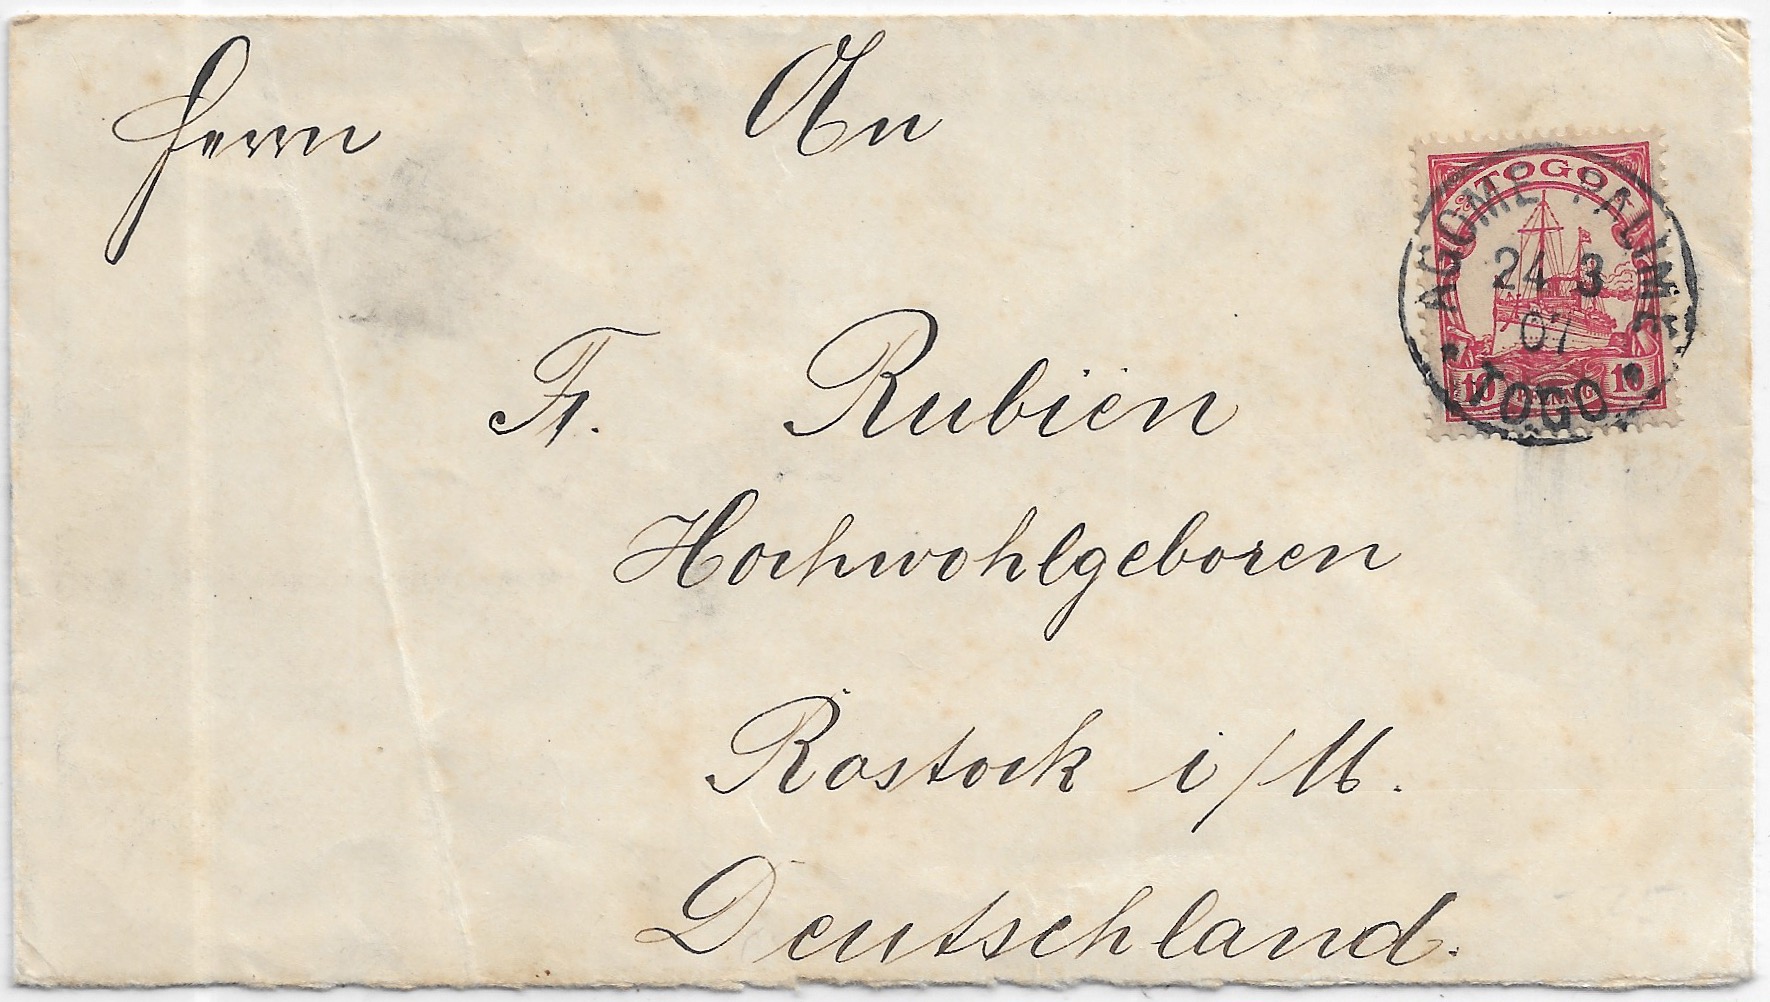 Herrn An
Fr. Rubien
Hochwohlgeboren
Rostock i/M.
Deutschland.
TOGO
10 PFENNIG 10
AGOME PALIME
24 3
07
TOGO